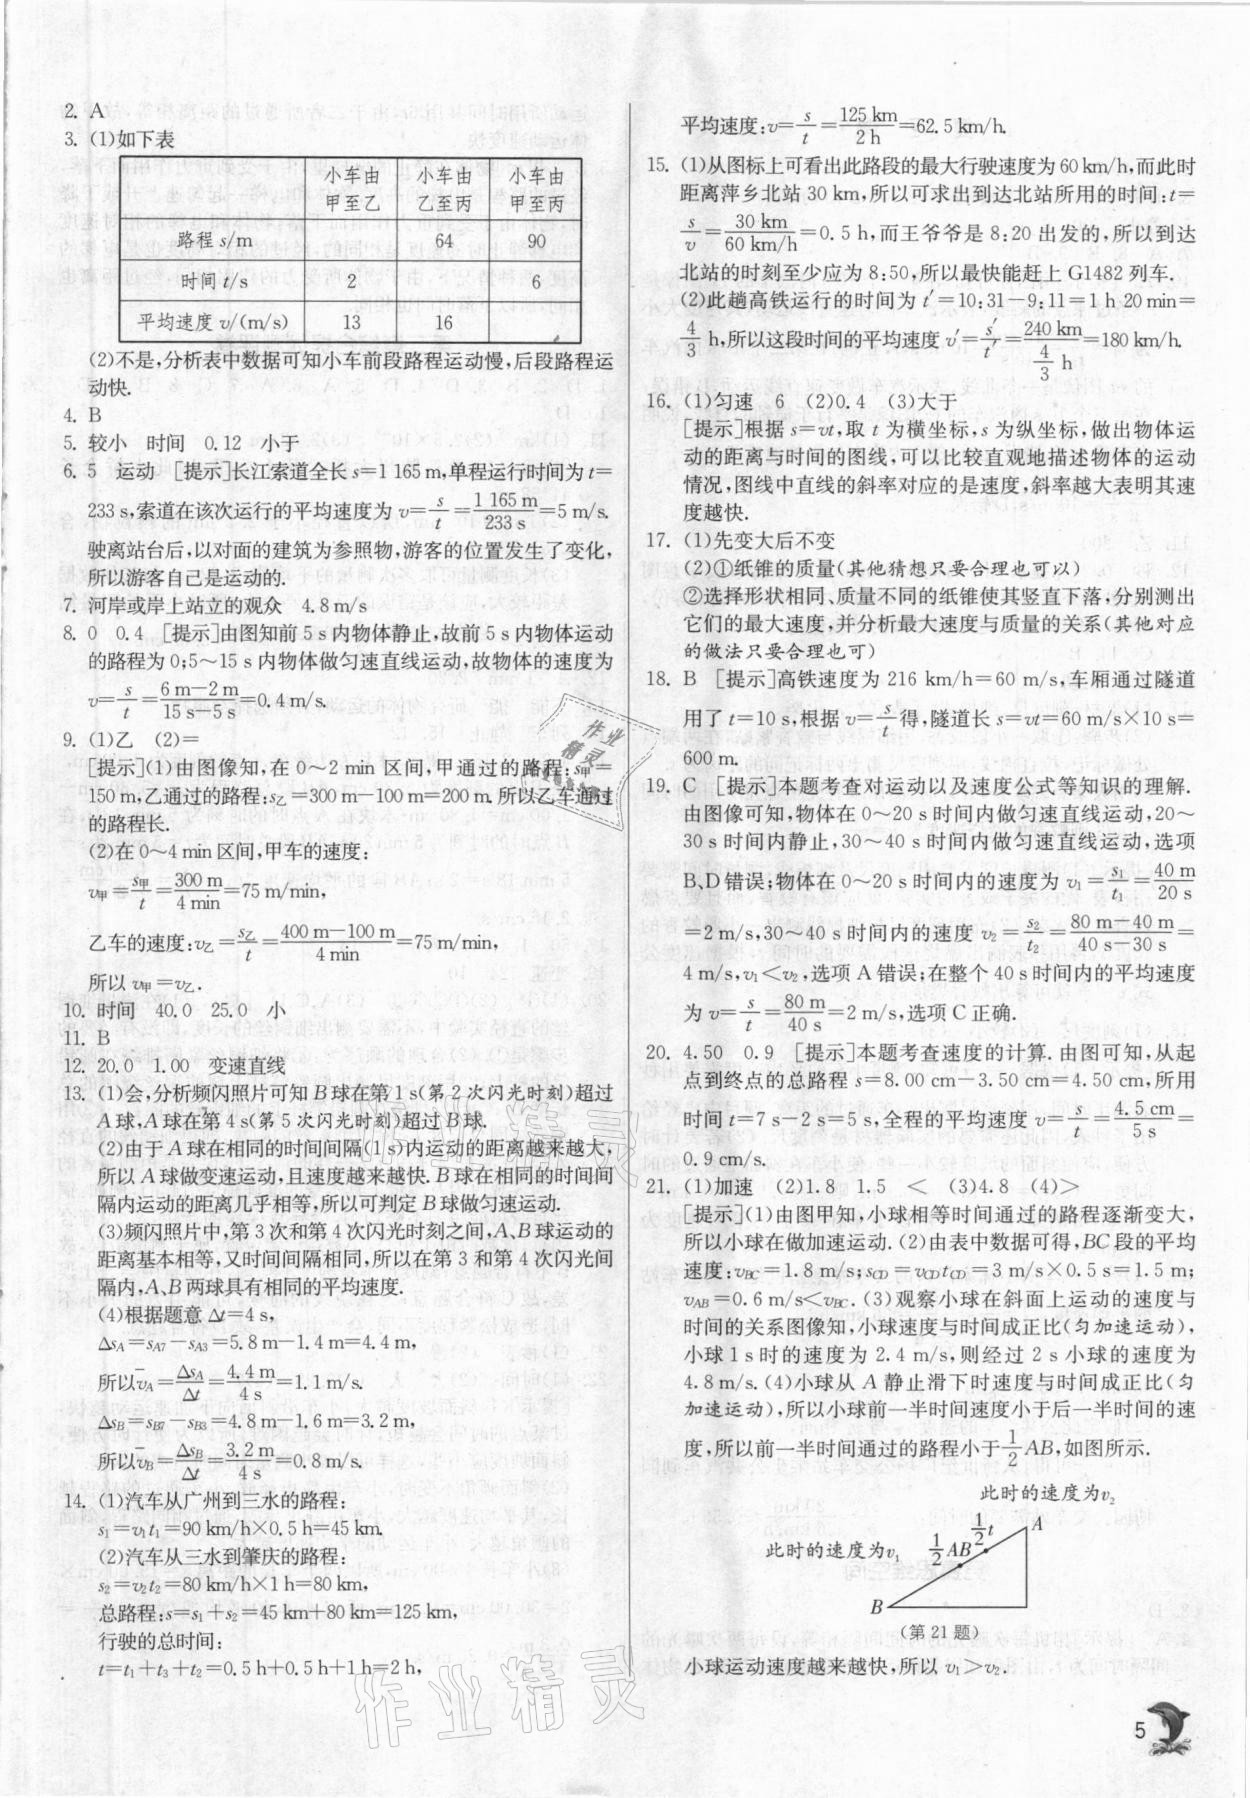 2. A
3. (1)如下表
小车由甲至乙 小车由乙至丙 小车由甲至丙
路程 s/m 64 90
时间 t/s 2 6
平均速度 v/(m/s) 13 16
(2)不是,分析表中数据可知小车前段路程运动慢,后段路程运
动快.
4. B
5. 较小 时间 0.12 小于
6. 5 运动 [提示]长江索道全长 s=1 165 m,单程运行时间为 t=
233 s,索道在该次运行的平均速度为 v=s/t=1 165 m/233 s=5 m/s.
驶离站台后,以对面的建筑为参照物,游客的位置发生了变化,
所以游客自己是运动的.
7. 河岸或岸上站立的观众 4.8 m/s
8. 0 0.4 [提示]由图知前 5 s 内物体静止,故前 5 s 内物体运动
的路程为 0;5～15 s 内物体做匀速直线运动,故物体的速度为
v=s/t=6 m-2 m/15 s-5 s=0.4 m/s.
9. (1)乙 (2)=
[提示](1)由图像知,在 0～2 min 区间,甲通过的路程:s甲=
150 m,乙通过的路程:s乙=300 m-100 m=200 m.所以乙车通过
的路程长.
(2)在 0～4 min 区间,甲车的速度:
v甲=s甲/t=300 m/4 min=75 m/min,
乙车的速度:v乙=s乙/t=400 m-100 m/4 min=75 m/min,
所以 v甲=v乙.
10. 时间 40.0 25.0 小
11. B
12. 20.0 1.00 变速直线
13. (1)会,分析频闪照片可知 B 球在第 1 s(第 2 次闪光时刻)超过
A 球,A 球在第 4 s(第 5 次闪光时刻)超过 B 球.
(2)由于 A 球在相同的时间间隔(1 s)内运动的距离越来越大,
所以 A 球做变速运动,且速度越来越快.B 球在相同的时间间
隔内运动的距离几乎相等,所以可判定 B 球做匀速运动.
(3)频闪照片中,第 3 次和第 4 次闪光时刻之间,A、B 球运动的
距离基本相等,又时间间隔相同,所以在第 3 和第 4 次闪光间
隔内,A、B 两球具有相同的平均速度.
(4)根据题意 Δt=4 s,
ΔsA=sA7-sA3=5.8 m-1.4 m=4.4 m,
所以v̄A=ΔsA/Δt=4.4 m/4 s=1.1 m/s.
ΔsB=sB7-sB3=4.8 m-1.6 m=3.2 m,
所以v̄B=ΔsB/Δt=3.2 m/4 s=0.8 m/s.
14. (1)汽车从广州到三水的路程:
s1=v1t1=90 km/h×0.5 h=45 km.
(2)汽车从三水到肇庆的路程:
s2=v2t2=80 km/h×1 h=80 km,
总路程:s=s1+s2=45 km+80 km=125 km,
行驶的总时间:
t=t1+t3+t2=0.5 h+0.5 h+1 h=2 h,
平均速度:v=s/t=125 km/2 h=62.5 km/h.
15. (1)从图标上可看出此路段的最大行驶速度为 60 km/h,而此时
距离萍乡北站 30 km,所以可求出到达北站所用的时间:t=
s/v=30 km/60 km/h=0.5 h,而王爷爷是 8:20 出发的,所以到达
北站的时刻至少应为 8:50,所以最快能赶上 G1482 列车.
(2)此趟高铁运行的时间为 t′=10:31-9:11=1 h 20 min=
4/3 h,所以这段时间的平均速度 v′=s′/t′=240 km/(4/3 h)=180 km/h.
16. (1)匀速 6 (2)0.4 (3)大于
[提示]根据 s=vt,取 t 为横坐标,s 为纵坐标,做出物体运
动的距离与时间的图线,可以比较直观地描述物体的运动
情况,图线中直线的斜率对应的是速度,斜率越大表明其速
度越快.
17. (1)先变大后不变
(2)①纸锥的质量(其他猜想只要合理也可以)
②选择形状相同、质量不同的纸锥使其竖直下落,分别测出
它们的最大速度,并分析最大速度与质量的关系(其他对应
的做法只要合理也可)
18. B [提示]高铁速度为 216 km/h=60 m/s,车厢通过隧道
用了 t=10 s,根据 v=s/t得,隧道长 s=vt=60 m/s×10 s=
600 m.
19. C [提示]本题考查对运动以及速度公式等知识的理解.
由图像可知,物体在 0～20 s 时间内做匀速直线运动,20～
30 s 时间内静止,30～40 s 时间内做匀速直线运动,选项
B、D 错误;物体在 0～20 s 时间内的速度为 v1=s1/t1=40 m/20 s
=2 m/s,30～40 s 时间内的速度 v2=s2/t2=80 m-40 m/40 s-30 s=
4 m/s,v1<v2,选项 A 错误;在整个 40 s 时间内的平均速度
为 v=s/t=80 m/40 s=2 m/s,选项 C 正确.
20. 4.50 0.9 [提示]本题考查速度的计算.由图可知,从起
点到终点的总路程 s=8.00 cm-3.50 cm=4.50 cm,所用
时间 t=7 s-2 s=5 s,全程的平均速度 v=s/t=4.5 cm/5 s=
0.9 cm/s.
21. (1)加速 (2)1.8 1.5 < (3)4.8 (4)>
[提示](1)由图甲知,小球相等时间通过的路程逐渐变大,
所以小球在做加速运动.(2)由表中数据可得,BC 段的平均
速度:vBC=1.8 m/s;sCD=vCDtCD=3 m/s×0.5 s=1.5 m;
vAB=0.6 m/s<vBC.(3)观察小球在斜面上运动的速度与
时间的关系图像知,小球速度与时间成正比(匀加速运动),
小球 1 s 时的速度为 2.4 m/s,则经过 2 s 小球的速度为
4.8 m/s.(4)小球从 A 静止滑下时速度与时间成正比(匀
加速运动),所以小球前一半时间速度小于后一半时间的速
度,所以前一半时间通过的路程小于1/2 AB,如图所示.
此时的速度为v2
1/2 t
A
此时的速度为v1
1/2 AB
B
(第 21 题)
小球运动速度越来越快,所以 v1>v2.
5
作业精灵
作业精灵
作业精灵